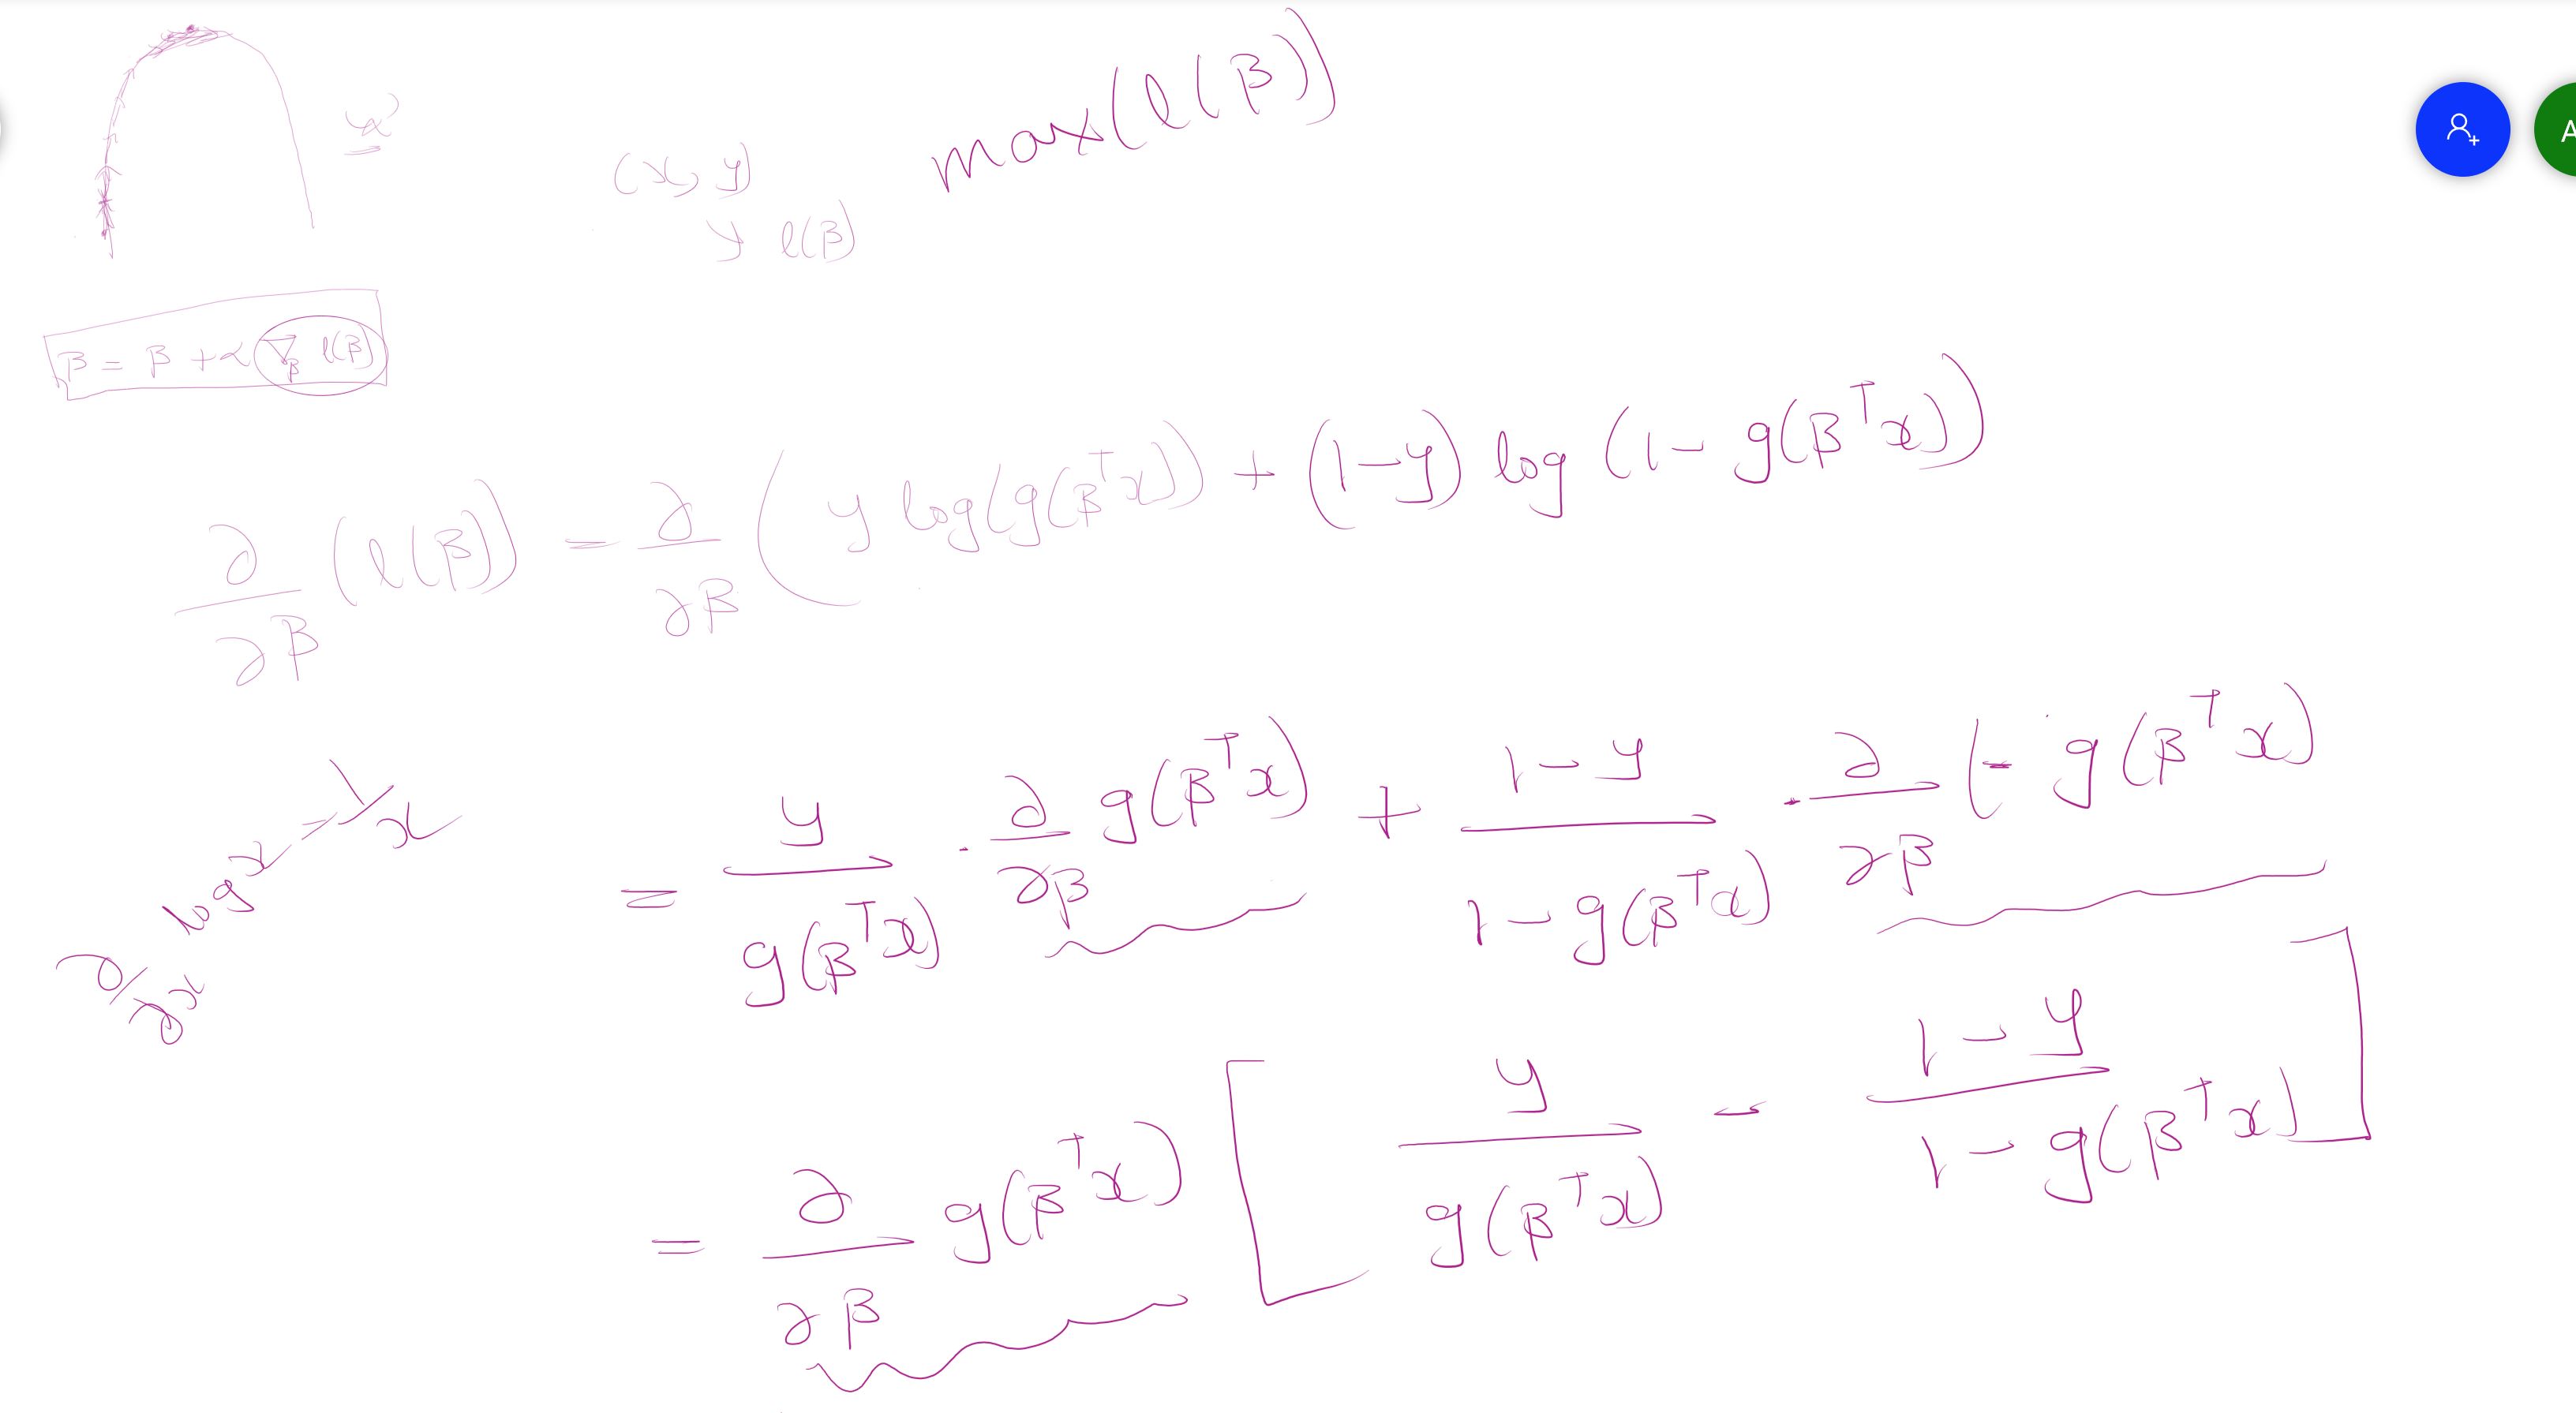 max(l(β))
α
(x, y)
y l(β)
β = β + α ∇β l(β)
∂/∂β (l(β)) = ∂/∂β ( y log(g(βᵀx)) + (1-y) log (1 - g(βᵀx))
∂/∂x log x = 1/x
= y/g(βᵀx) · ∂/∂β g(βᵀx) + 1-y/1-g(βᵀx) · ∂/∂β (- g(βᵀx)
= ∂/∂β g(βᵀx) [ y/g(βᵀx) - 1-y/1-g(βᵀx) ]
A